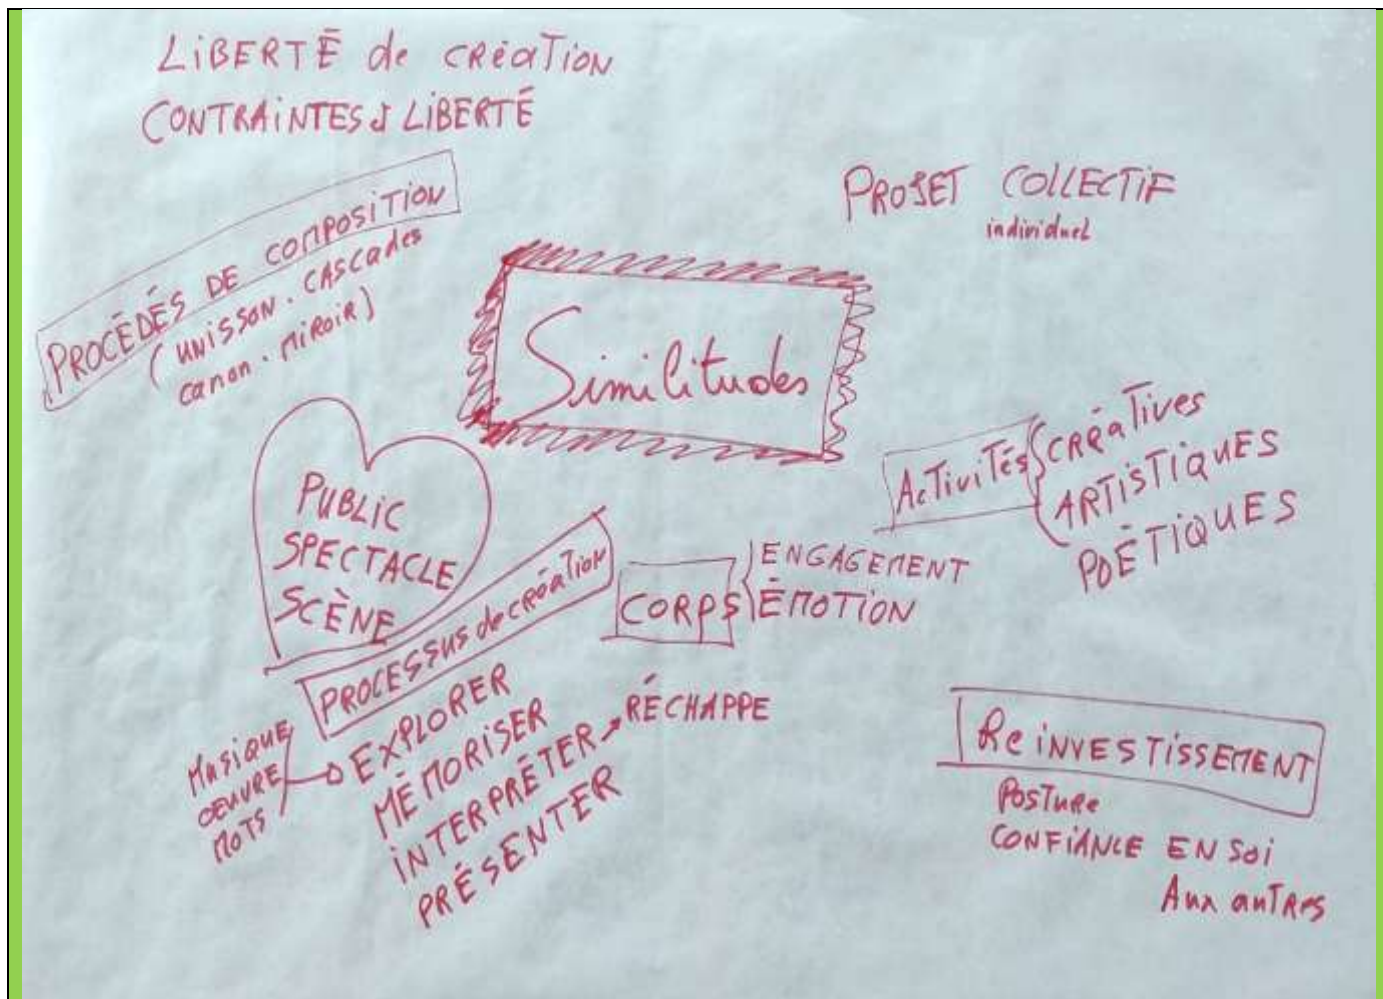 LiBERTÉ de CRéaTiON
CONTRAiNTES & LiBERTÉ
PROJET COLLECTiF
individuel
PROCÉDÉS DE COMPOSiTiON
(UNiSSON . CASCades
canon . MiRoiR)
Similitudes
AcTiviTés
CRéaTives
ARTiSTiQUES
POÉTiQUES
PUBLiC
SPECTACLE
SCÈNE
CORPS
ENGAGEMENT
ÉMOTiON
PROCESSUS de CRéaTiON
MusiQUE
OEUVRE
MOTS
EXPLORER
MÉMORiSER
iNTERPRÉTER
PRÉSENTER
RÉCHAPPE
Re iNVESTiSSEMENT
POSTURe
CONFiANCE EN Soi
Aux auTRes